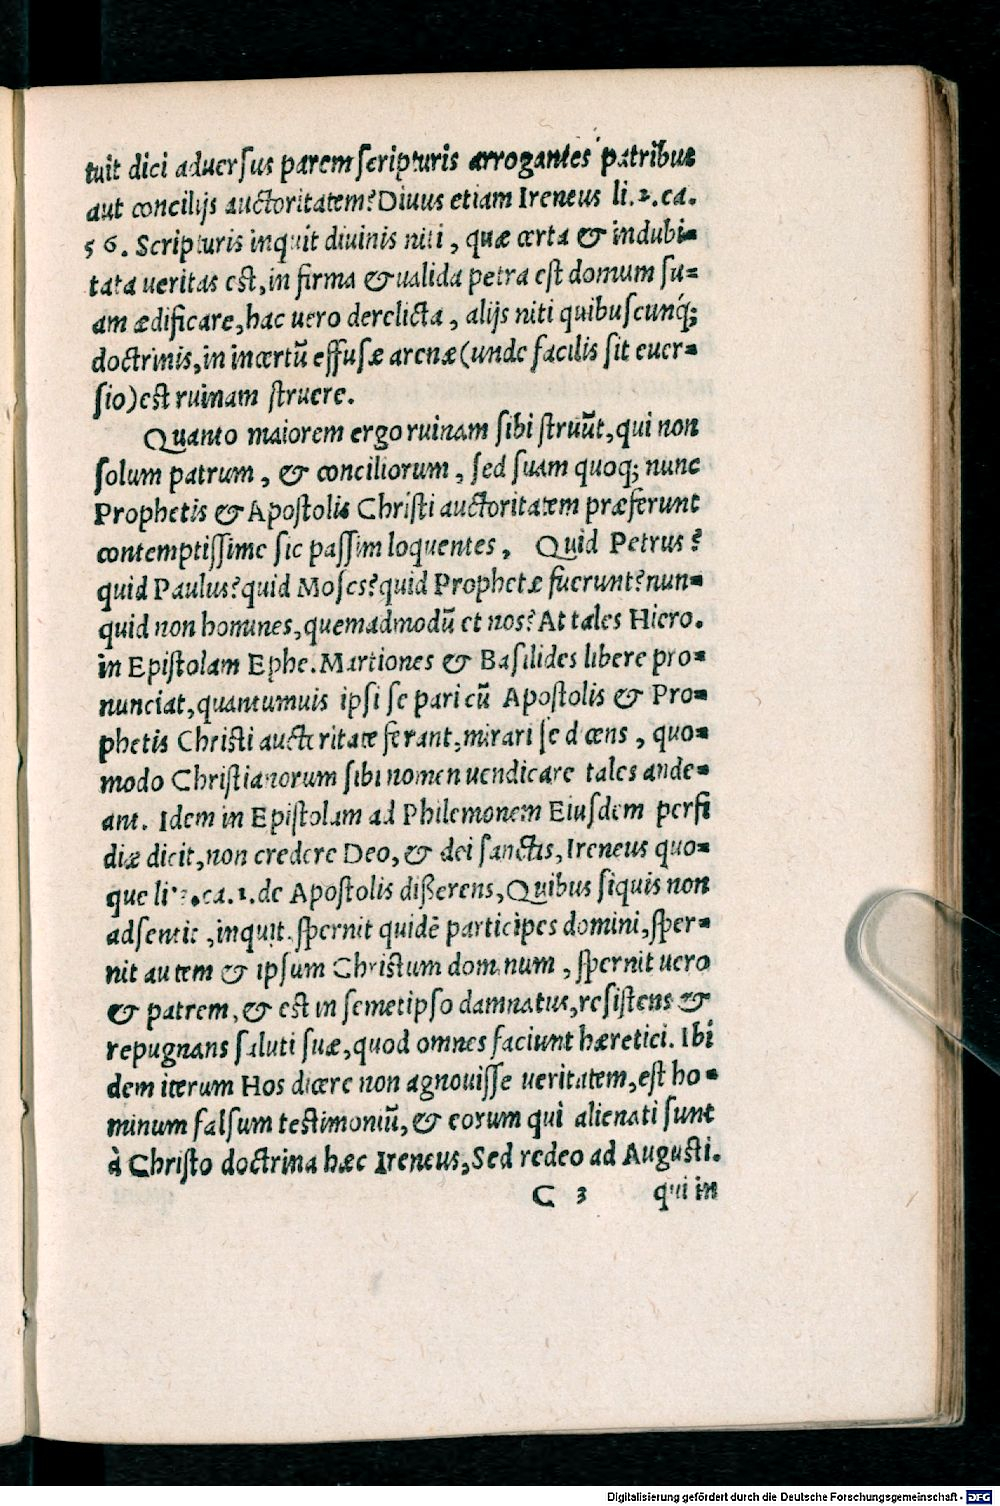 tuit dici aduersus parem scripturis arrogantes patribus
aut concilijs auctoritatem? Diuus etiam Ireneus li.2.ca.
56. Scripturis inquit diuinis niti, quæ certa & indubi-
tata ueritas est, in firma & ualida petra est domum su-
am ædificare, hac uero derelicta, alijs niti quibuscunq;
doctrinis, in incertū effusæ arenæ (unde facilis sit euer-
sio) est ruinam struere.
Quanto maiorem ergo ruinam sibi struūt, qui non
solum patrum, & conciliorum, sed suam quoq; nunc
Prophetis & Apostolis Christi auctoritatem præferunt
contemptissime sic passim loquentes, Quid Petrus?
quid Paulus? quid Moses? quid Prophetæ fuerunt? nun-
quid non homines, quemadmodū et nos? At tales Hiero.
in Epistolam Ephe. Martiones & Basilides libere pro-
nunciat, quantumuis ipsi se pari cū Apostolis & Pro-
phetis Christi auctoritate ferant, mirari se dicens, quo-
modo Christianorum sibi nomen uendicare tales ande-
ant. Idem in Epistolam ad Philemonem Eiusdem perfi
diæ dicit, non credere Deo, & dei sanctis, Ireneus quo-
que ca.1. de Apostolis disserens, Quibus siquis non
adsentit, inquit, spernit quidē participes domini, sper-
nit autem & ipsum Christum dominum, spernit uero
& patrem, & est in semetipso damnatus, resistens &
repugnans saluti suæ, quod omnes faciunt hæretici. Ibi
dem iterum Hos dicere non agnouisse ueritatem, est ho-
minum falsum testimoniū, & eorum qui alienati sunt
à Christo doctrina hæc Ireneus, Sed redeo ad Augusti.
C 3 qui in
Digitalisierung gefördert durch die Deutsche Forschungsgemeinschaft - DFG